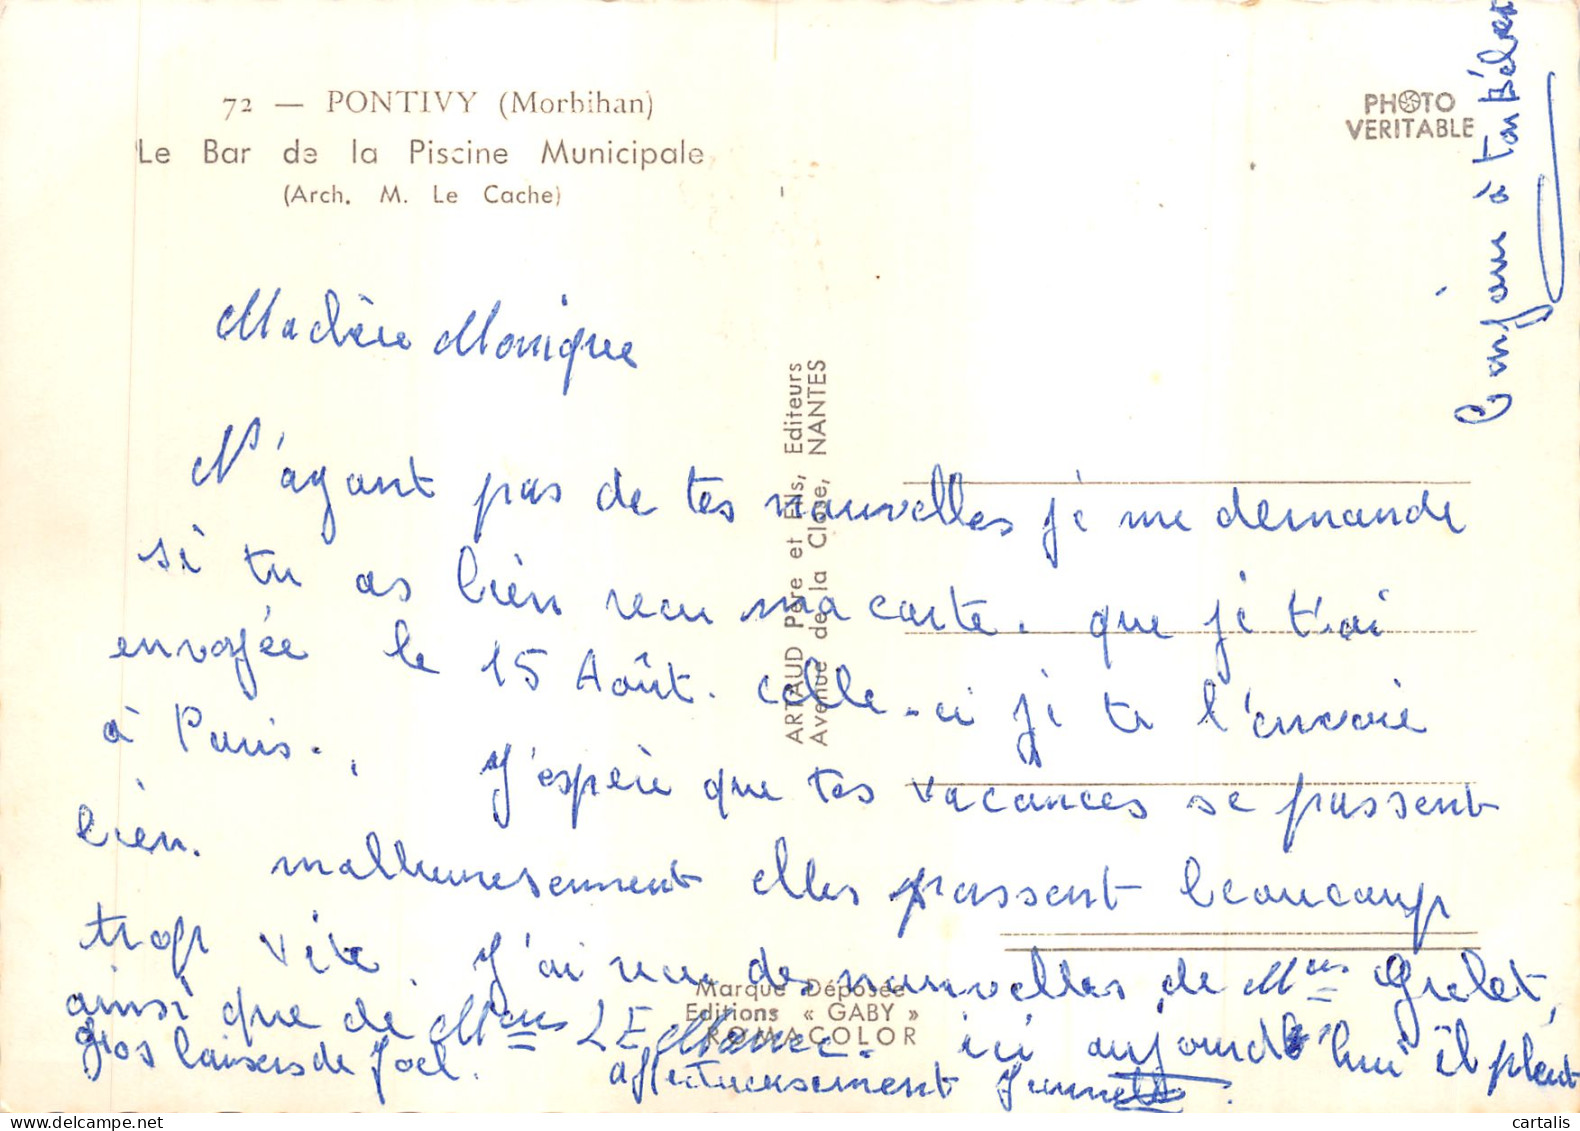 72 — PONTIVY (Morbihan)
Le Bar de la Piscine Municipale
(Arch. M. Le Cache)
PHOTO
VERITABLE
Ma chère Monique
N'ayant pas de tes nouvelles je me demande
si tu as bien recu ma carte. que je t'ai
envoyée le 15 Août. celle-ci je te l'envoie
à Paris.
J'espère que tes vacances se passent
bien. malheureusement elles passent beaucoup
trop vite. J'ai recu de nouvelles de Mme Grelet,
ainsi que de Mme LE ici aujourd'hui il pleut
Gros baisers de Joel. affectueusement
à ta
ARTAUD Père et Fils, Editeurs
Avenue de la Close, NANTES
Marque Déposée
Editions « GABY »
ROMACOLOR
cartalis